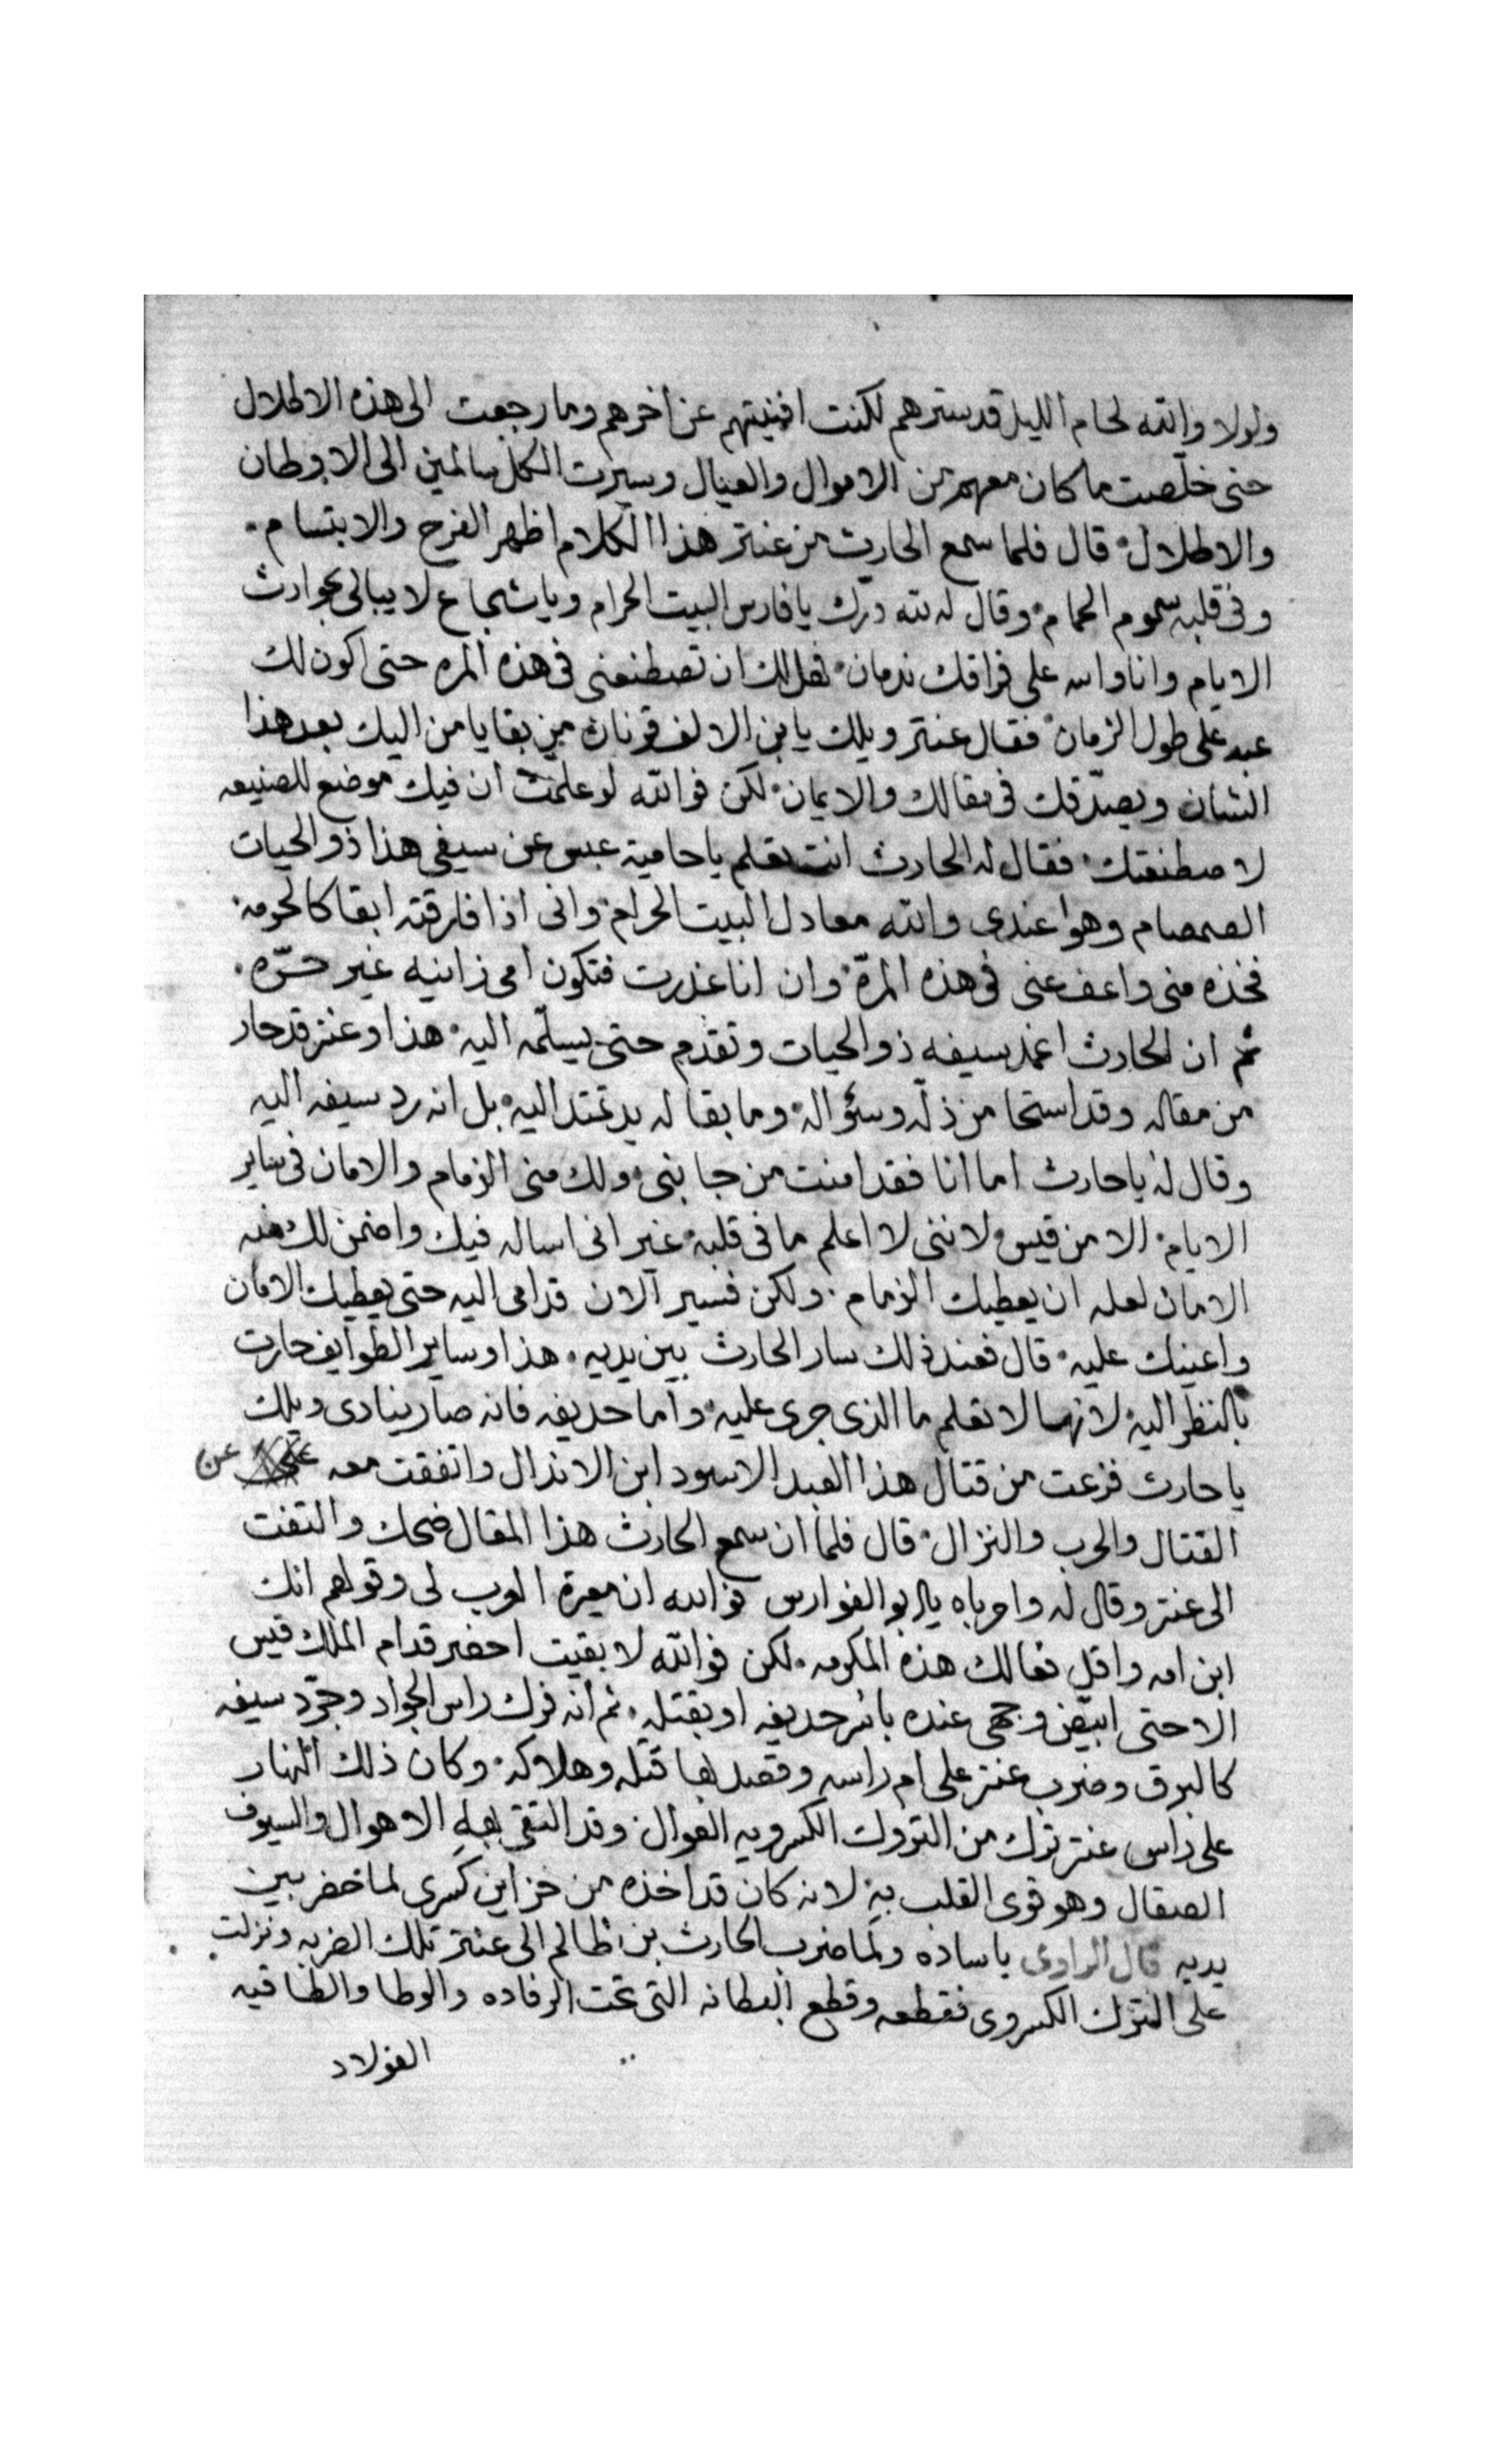 ولولا والله لحام الليل قد سترهم لكنت افنيتهم عن اخرهم وما رجعت الى هذه الاطلال
حتى خلّصت ما كان معهم من الاموال والعيال وسيرت الكل سالمين الى الاوطان
والاطلال قال فلما سمع الحارث من عنتر هذا الكلام اظهر الفرح والابتسام
وفى قلبه سموم الحمام وقال له لله درّك يا فارس البيت الحرام ويا شجاع لا يبالى بحوادث
الايام وانا والله على فراقك ندمان فهل لك ان تصطنعنى فى هذه المره حتى اكون لك
عبد على طول الزمان فقال عنتر ويلك يابن الالف قرنان من بقا يامن اليك بعد هذا
الشان ويصدّقك فى مقالك والايمان لكن فوالله لو علمت ان فيك موضع للصنيعه
لاصطنعتك فقال له الحارث انت تعلم يا حامية عبس عن سيفى هذا ذو الحيات
الصمصام وهوا عندى والله معادل البيت الحرام وانى اذا فارقته ابقا كالحرمه
فخذه منى واعف عنى فى هذه المرّة وان انا غدرت فتكون امى زانيه غير حرّه
ثم ان الحارث اغمد سيفه ذو الحيات وتقدم حتى يسلّمه اليه هذا وعنتر قد حار
من مقاله وقد استحا من ذلّه وسؤاله وما بقا له يد تمتد اليه بل انه رد سيفه اليه
وقال له يا حارث اما انا فقد امنت من جانبى ولك منى الزمام والامان فى ساير
الايام الا من قيس لاننى لا اعلم ما فى قلبه غير انى اساله فيك واضمن لك منه
الامان لعله ان يعطيك الزمام ولكن فسير الان قدامى اليه حتى يعطيك الامان
واعينك عليه قال فعند ذلك سار الحارث بين يديه هذا وساير الطوايف حارت
بالنظر اليه لانهما لا تعلم ما الذى جرى عليه واما حديفه فانه صار ينادى ويلك
يا حارث فزعت من قتال هذا العبد الاسود ابن الاندال واتفقت معه عن
القتال والحرب والنزال قال فلما ان سمع الحارث هذا المقال ضحك والتفت
الى عنتر وقال له واحرباه يا ابو الفوارس فوالله ان معيرة العرب لى وقولهم انك
ابن امه واقل فعالك هذه المكرمه لكن فوالله لا بقيت احضر قدام الملك قيس
الا حتى ابيّض وجهى عنده باسر حديفه او بقتله ثم انه فرك راس الجواد وجرّد سيفه
كالبرق وضرب عنتر على ام راسه وقصد بها قتله وهلاكه وكان ذلك النهار
على راس عنتر ترك من التروك الكسرويه العوال وقد التقى به الاهوال والسيوف
الصقال وهو قوى القلب به لانه كان قد اخذه من خزاين كسرى لما حضر بين
يديه قال الراوى يا ساده ولما ضرب الحارث بن ظالم الى عنتر تلك الضربه ونزلت
على الترك الكسروى فقطعه وقطع البطانه التى تحت الرفاده والوطا والطاقيه
الفولاد